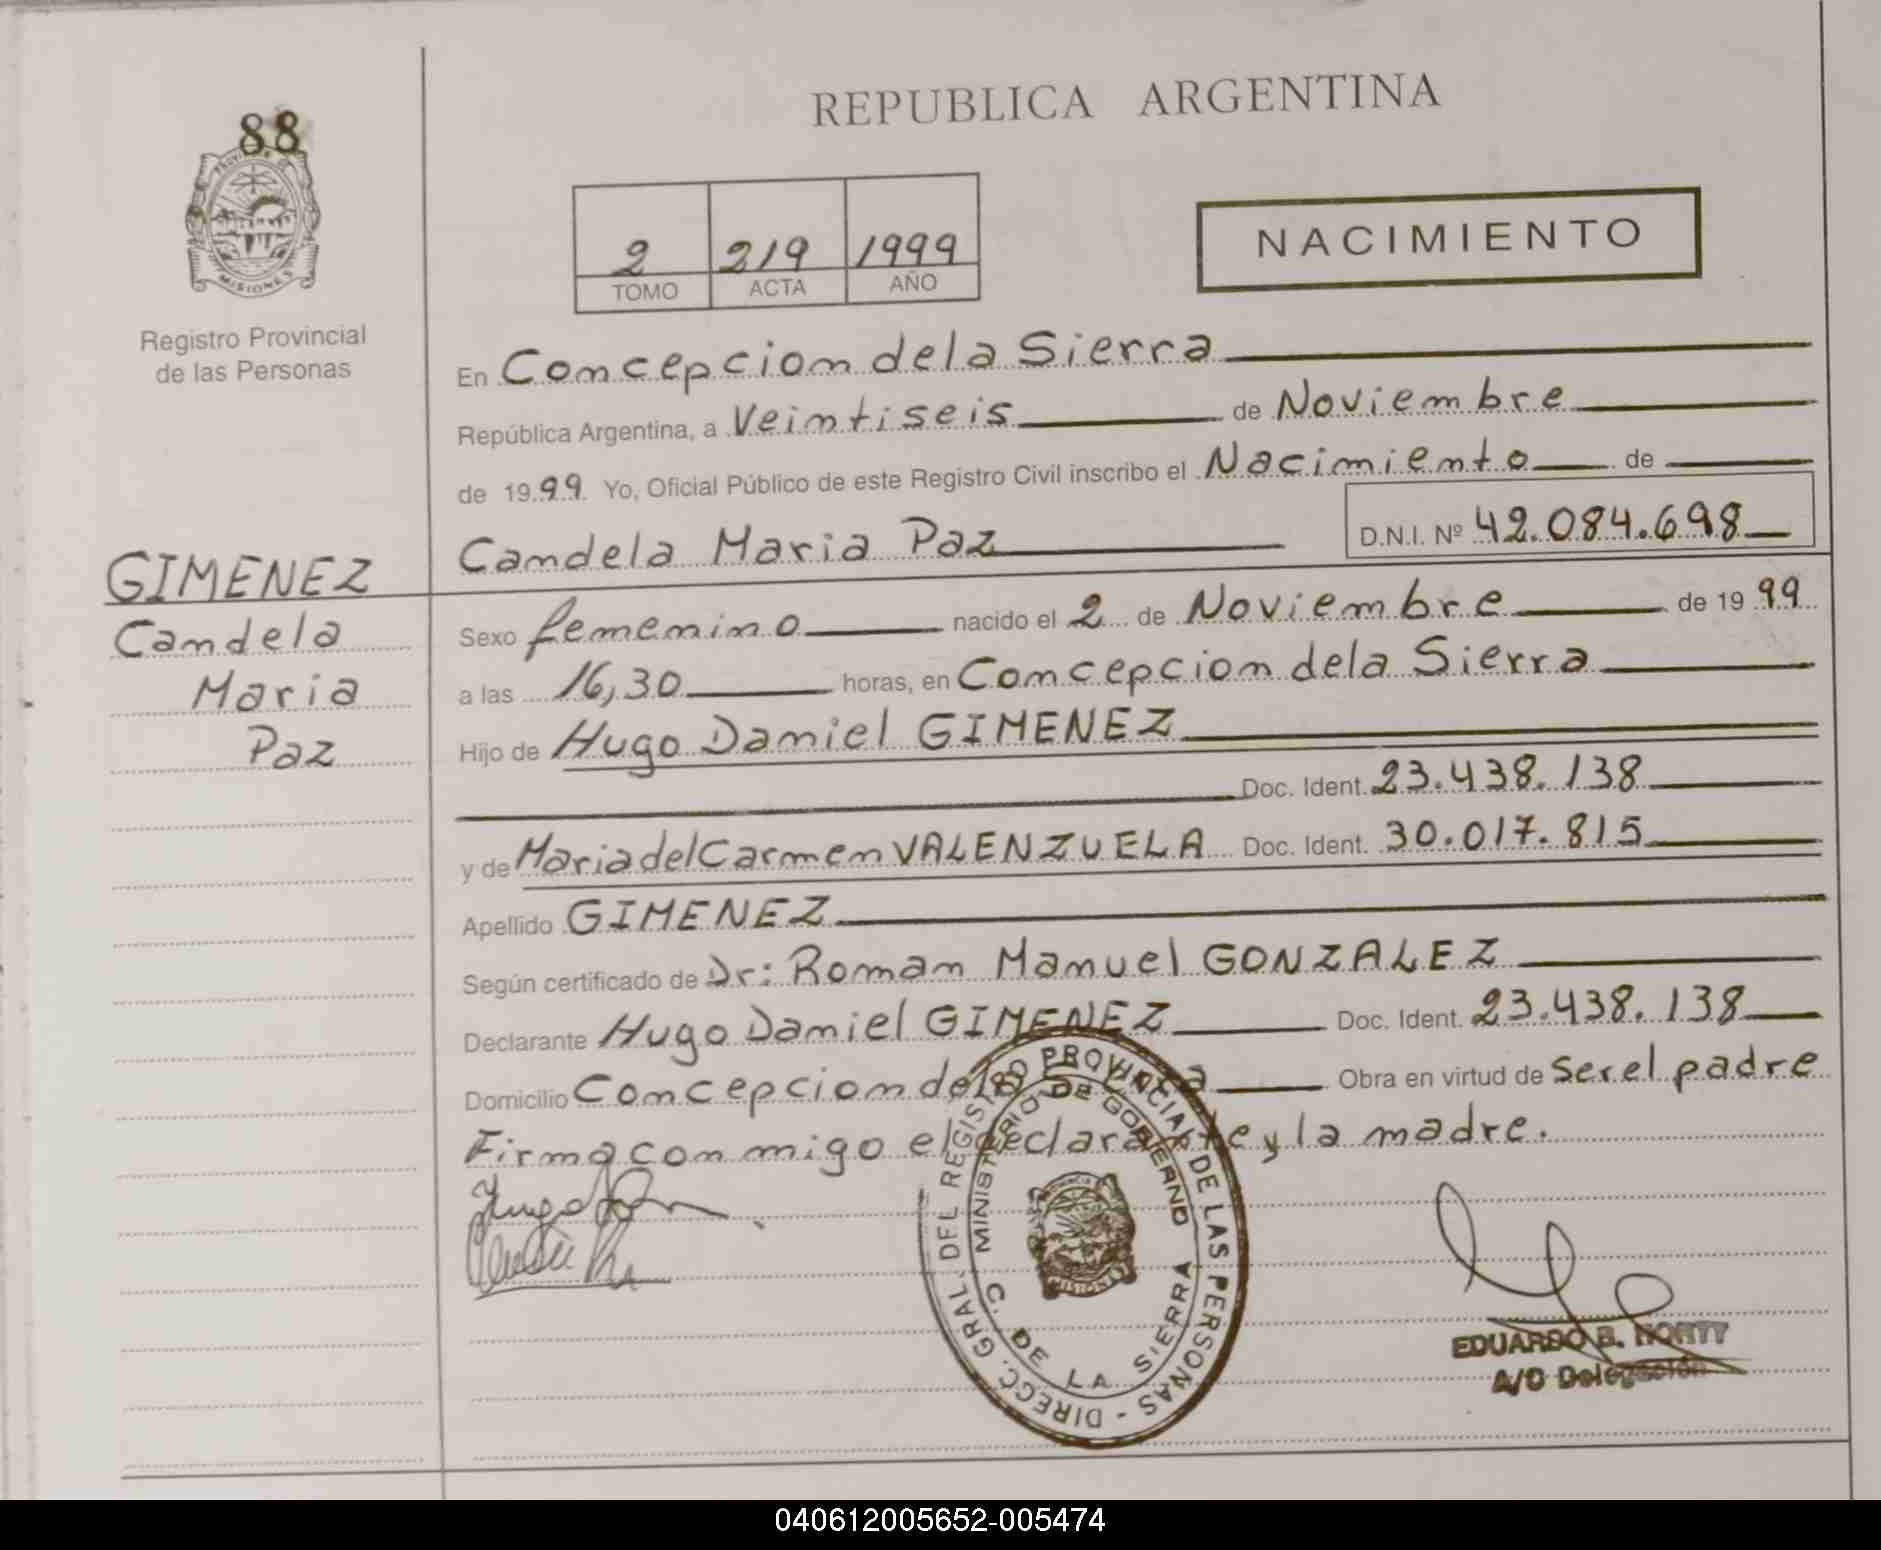 88
PROVINCIA DE
MISIONES
Registro Provincial
de las Personas
GIMENEZ
Candela
Maria
Paz
REPUBLICA ARGENTINA
2 219 1999
TOMO ACTA AÑO
NACIMIENTO
En Concepcion de la Sierra
República Argentina, a Veintiseis de Noviembre
de 1999 Yo, Oficial Público de este Registro Civil inscribo el Nacimiento de
Candela Maria Paz D.N.I. Nº 42.084.698
Sexo femenino nacido el 2 de Noviembre de 1999
a las 16,30 horas, en Concepcion dela Sierra
Hijo de Hugo Daniel GIMENEZ
Doc. Ident. 23.438.138
y de Maria del Carmen VALENZUELA Doc. Ident. 30.017.815
Apellido GIMENEZ
Según certificado de Dr: Roman Manuel GONZALEZ
Declarante Hugo Daniel GIMENEZ Doc. Ident. 23.438.138
Domicilio Concepcion de la Obra en virtud de ser el padre
Firma con migo el declarante y la madre.
DIRECC. GRAL. DEL REGISTRO PROVINCIAL DE LAS PERSONAS -
MINISTERIO DE GOBIERNO
C. DE LA SIERRA
MISIONES
EDUARDO B. NORTY
A/C Delegación
040612005652-005474